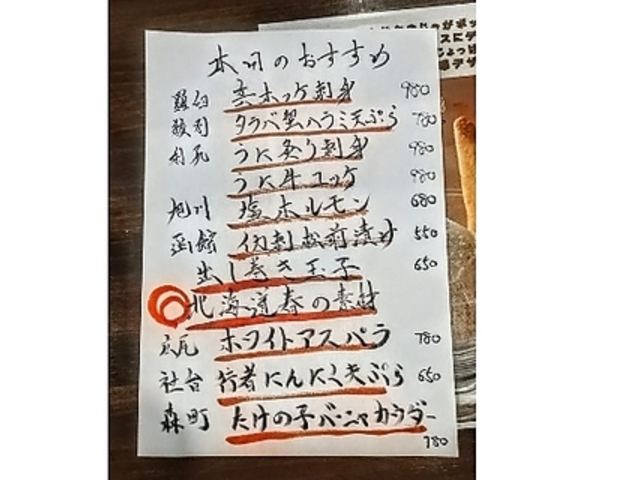 本日のおすすめ
羅臼 真ホッケ刺身 980
紋別 タラバ蟹ハラミ天ぷら 780
利尻 うに炙り刺身 980
うに牛ユッケ 980
旭川 塩ホルモン 680
函館 松前漬け 550
出し巻き玉子 650
北海道春の素材
広尾 ホワイトアスパラ 780
社台 行者にんにく天ぷら 650
森町 たけの子バーニャカウダー
780